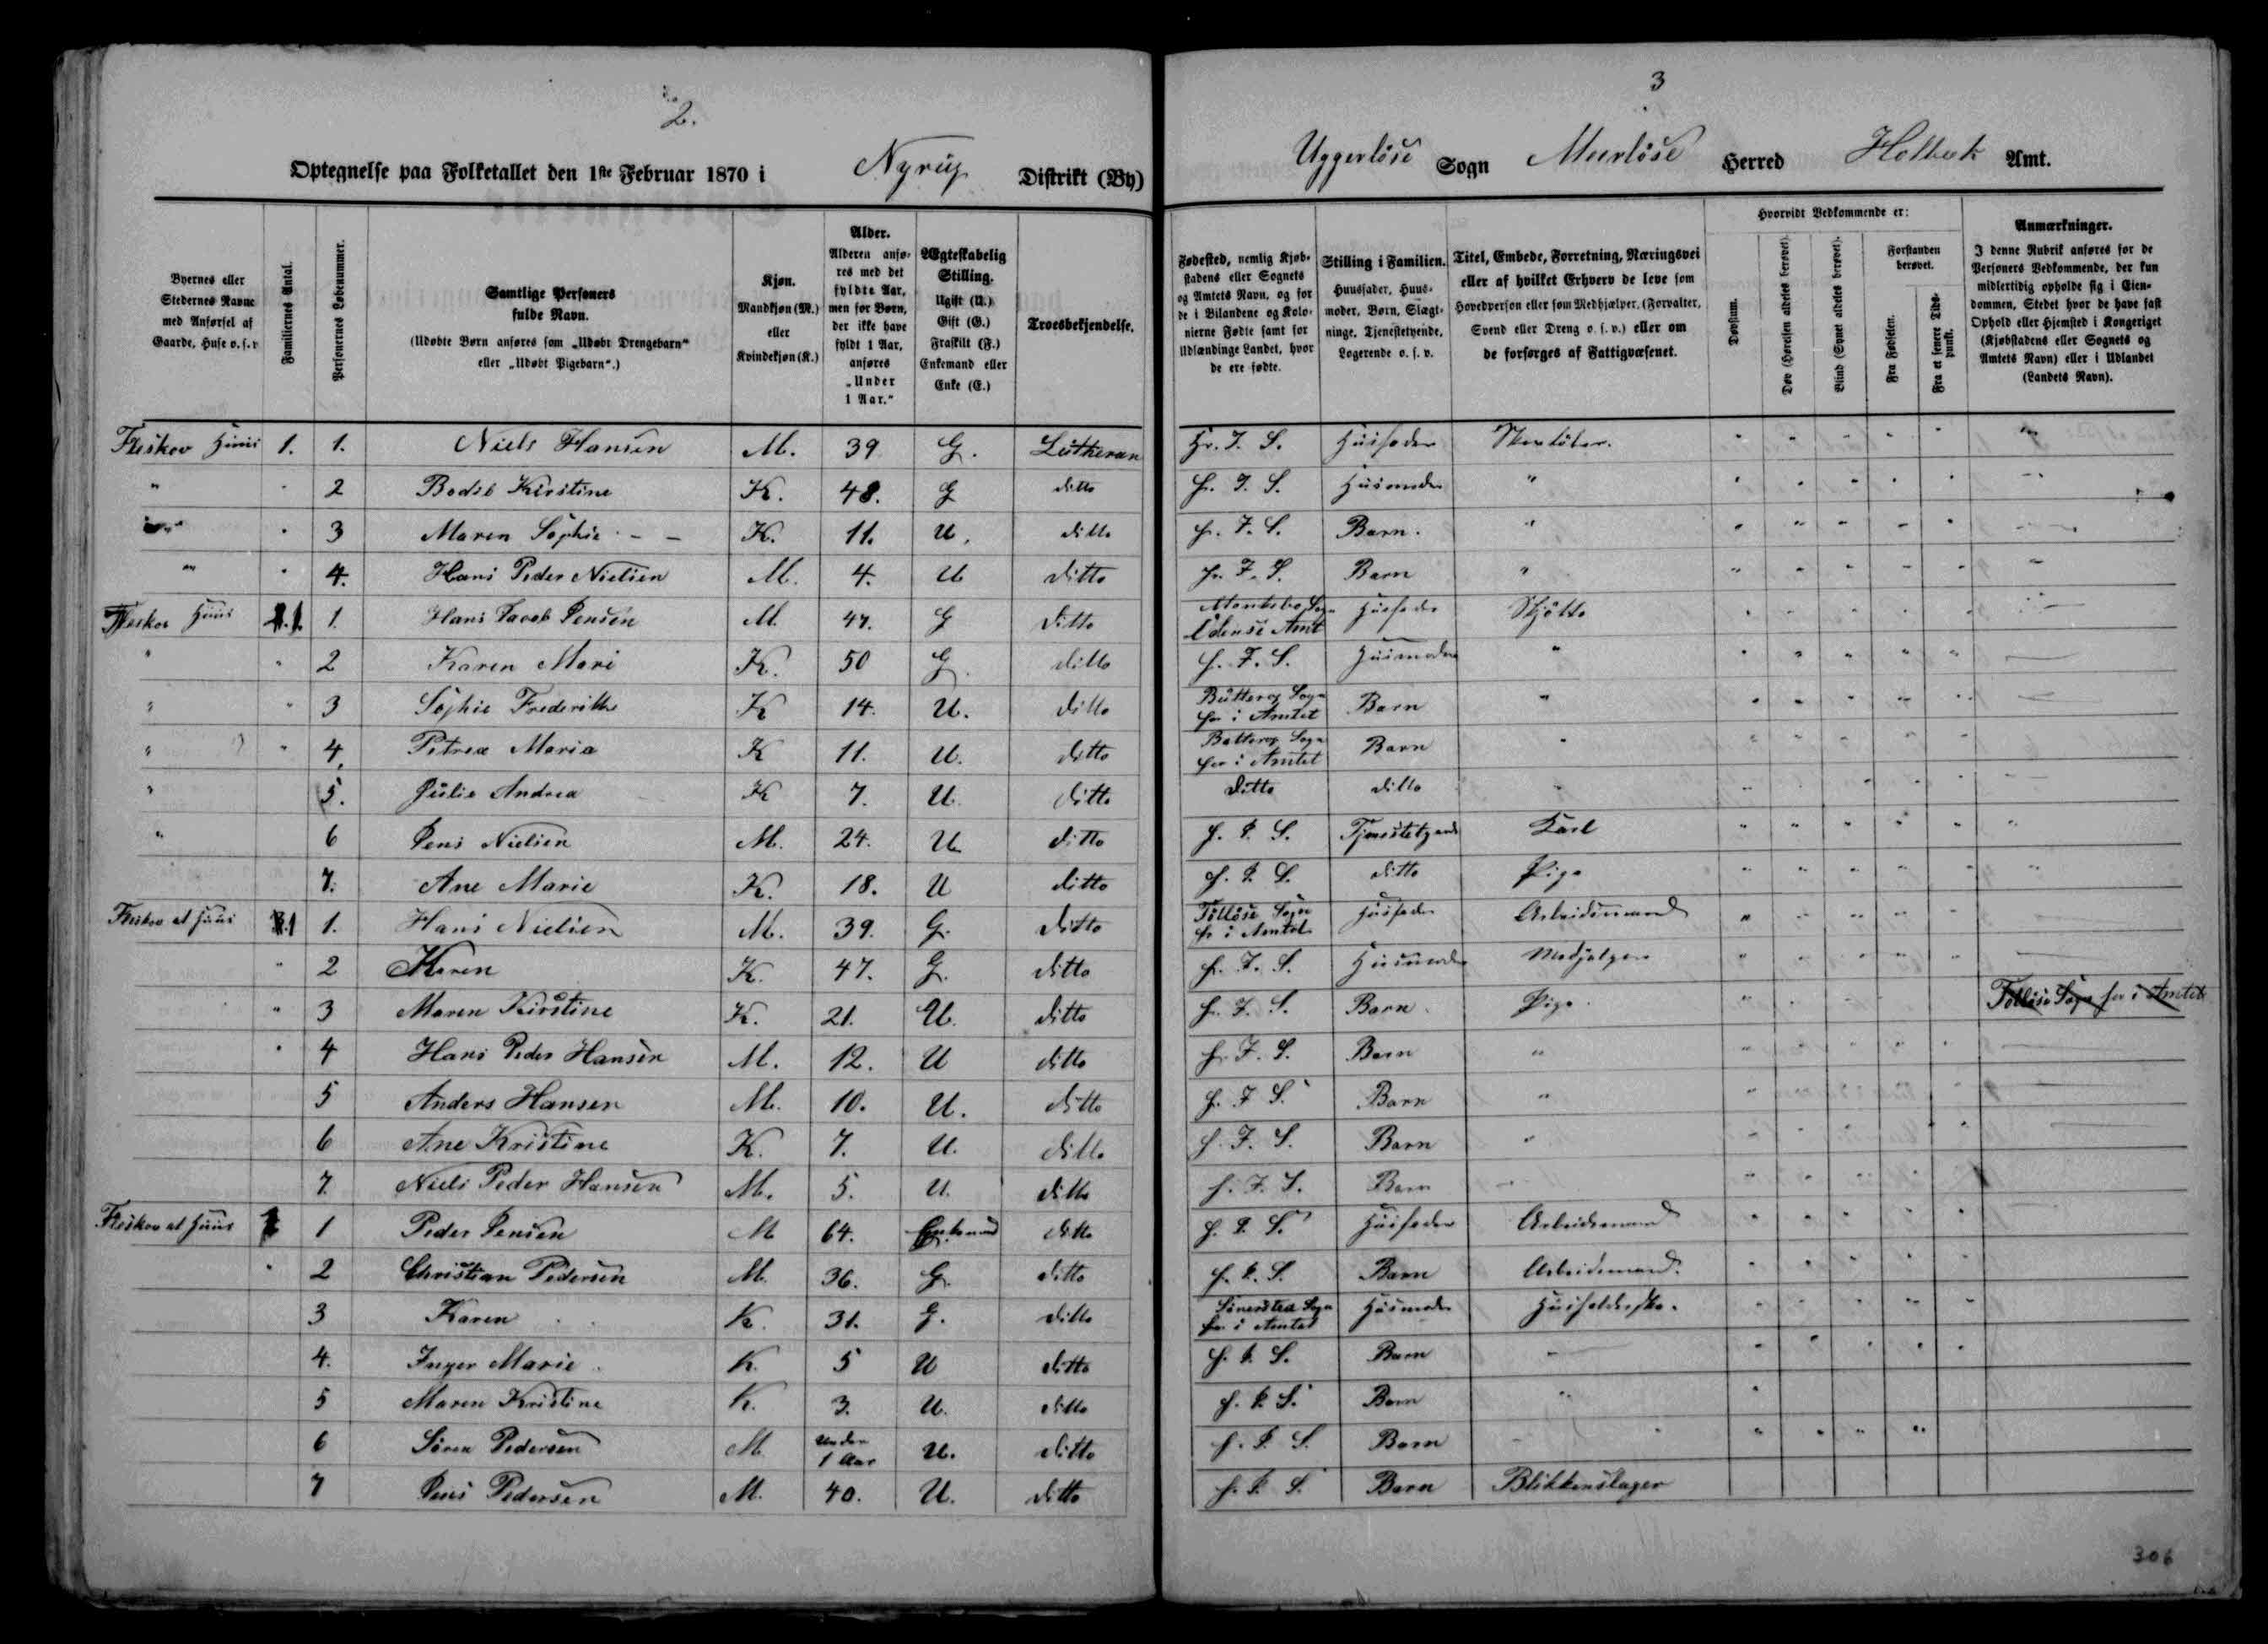 2.
3
Optegnelse paa Folketallet den 1ste Februar 1870 i Nyrup Distrikt (By)
Uggerløse Sogn Meerløse Herred Holbek Amt.
Byernes eller Stedernes Navne med Anførsel af Gaarde, Huse o. s. v
Familiernes Antal.
Personernes Løbenummer.
Samtlige Personers fulde Navn.
(Udøbte Børn anføres som „Udøbt Drengebarn“ eller „Udøbt Pigebarn“.)
Kjøn.
Mandkjøn (M.) eller Kvindekjøn (K.)
Alder.
Alderen anføres med det fyldte Aar, men for Børn, der ikke have fyldt 1 Aar, anføres „Under 1 Aar.“
Ægteskabelig Stilling.
Ugift (U.) Gift (G.) Fraskilt (F.) Enkemand eller Enke (E.)
Troesbekjendelse.
Fødested, nemlig Kjøbstadens eller Sognets og Amtets Navn, og for de i Bilandene og Kolonierne Fødte samt for Udlændinge Landet, hvor de ere fødte.
Stilling i Familien.
Huusfader, Huusmoder, Børn, Slægtninge, Tjenestetyende, Logerende o. s. v.
Titel, Embede, Forretning, Næringsvei eller af hvilket Erhverv de leve som Hovedperson eller som Medhjælper, (Forvalter, Svend eller Dreng o. s. v.) eller om de forsørges af Fattigvæsenet.
Hvorvidt Vedkommende er:
Døvstum.
Døv (Hørelsen aldeles berøvet).
Blind (Synet aldeles berøvet).
Forstanden berøvet.
Fra Fødselen.
Fra et senere Tidspunkt.
Anmærkninger.
I denne Rubrik anføres for de Personers Vedkommende, der kun midlertidig opholde sig i Eiendommen, Stedet hvor de have fast Ophold eller Hjemsted i Kongeriget (Kjøbstadens eller Sognets og Amtets Navn) eller i Udlandet (Landets Navn).
Huus 1. 1. Niels Hansen M. 39 G. Lutheran H. I. S. Huusfader
" " 2 Bodil Kirstine K. 48. G ditto H. I. S. Huusmoder "
" " 3 Maren Sophie - - K. 11. U. ditto H. I. S. Barn. "
" " 4. Hans Peder Nielsen M. 4. U ditto H. I. S. Barn "
Huus 1. 1. Hans Jacob Jensen M. 47. G ditto Sogn Odense Amt Huusfader Skytte
" " 2 Karen Mari K. 50 G. ditto H. I. S. Huusmoder "
" " 3 Sophie Frederikke K 14. U. ditto Sogn her i Amtet Barn "
" " 4. Petrea Maria K 11. U. ditto Sogn her i Amtet Barn "
" 5. Julie Andrea K 7. U. ditto ditto ditto "
" 6 Jens Nielsen M. 24. U. ditto H. I. S. Tjenestetyende Karl
7. Ane Marie K. 18. U ditto H. I. S. ditto Pige
et Huus 1 1. Hans Nielsen M. 39. G. ditto Tølløse Sogn her i Amtet Huusfader Arbeidsmand
" 2 Karen K. 47. G. ditto H. I. S. Huusmoder
" 3 Maren Kirstine K. 21. U. ditto H. I. S. Barn Pige Tølløse Sogn her i Amtet
" 4 Hans Peder Hansen M. 12. U ditto H. I. S. Barn "
5 Anders Hansen M. 10. U. ditto H. I. S. Barn "
6 Ane Kristine K. 7. U. ditto H. I. S. Barn "
7. Niels Peder Hansen M. 5. U. ditto H. I. S. Barn
et Huus 1 Peder Jensen M 64. Enkemand ditto H. I. S. Huusfader Arbeidsmand
" 2 Christian Pedersen M. 36. G. ditto H. I. S. Barn Arbeidsmand.
3 Karen K. 31. G. ditto Sogn her i Amtet Huusmoder Huusholderske.
4. Inger Marie K. 5 U ditto H. I. S. Barn
5 Maren Kristine K. 3. U. ditto H. I. S. Barn "
6 Sören Pedersen M. Under 1 Aar U. ditto H. I. S. Barn
7 Jens Pedersen M. 40. U. ditto H. I. S. Barn Blikkenslager
306